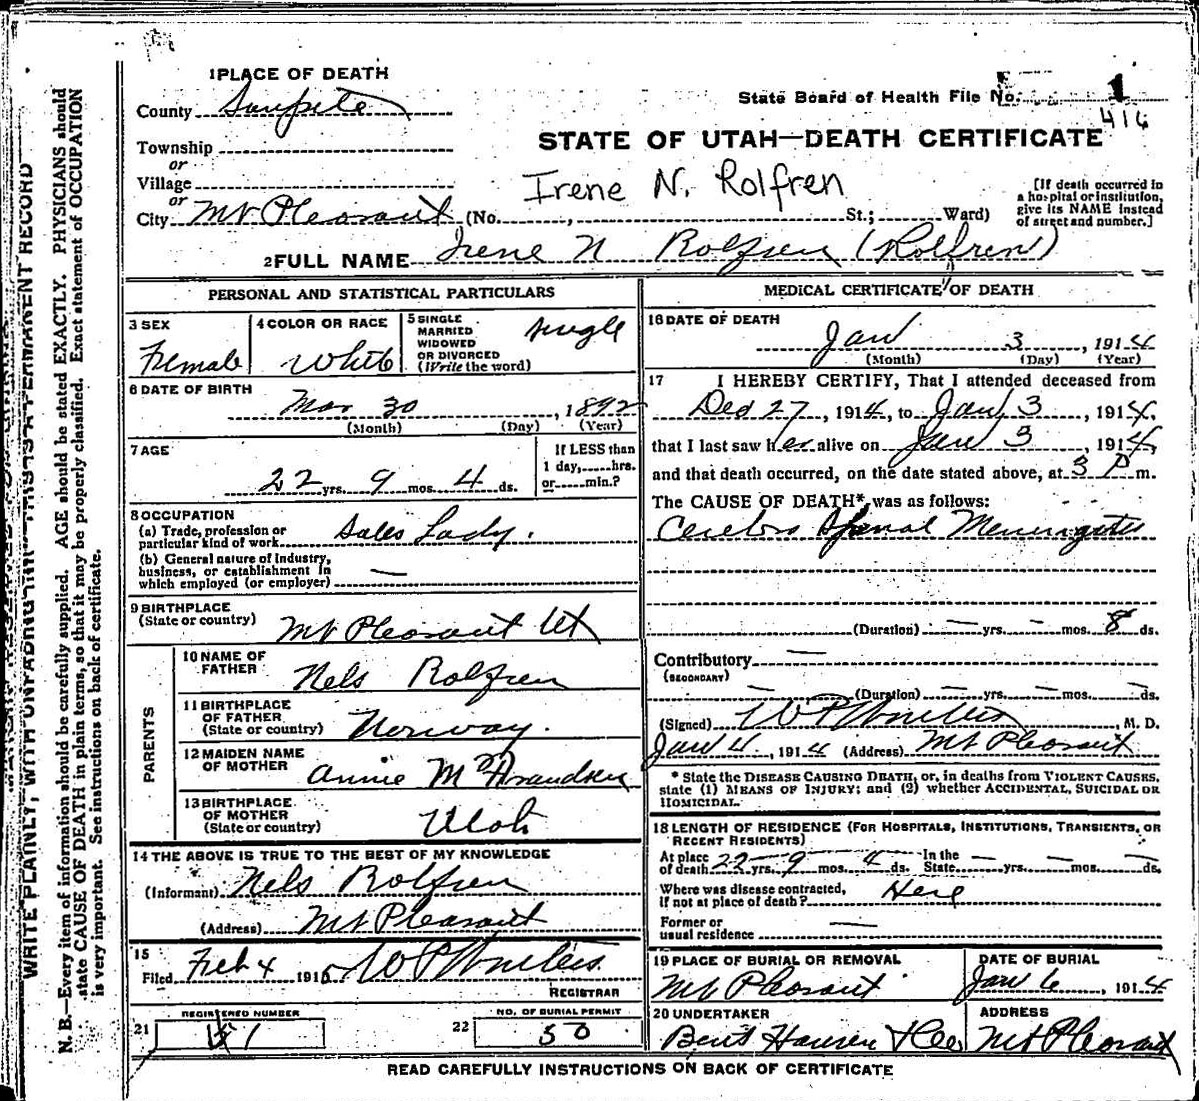 1 PLACE OF DEATH
County Sanpete
State Board of Health File No. 1
416
Township
or
Village
or
City Mt Pleasant (No. , St.; Ward)
STATE OF UTAH—DEATH CERTIFICATE
Irene N. Rolfren
[If death occurred in
a hospital or institution,
give its NAME instead
of street and number.]
2 FULL NAME Irene N Rolfren (Rolfren)
PERSONAL AND STATISTICAL PARTICULARS
3 SEX
Female
4 COLOR OR RACE
White
5 SINGLE
MARRIED
WIDOWED
OR DIVORCED
(Write the word)
single
6 DATE OF BIRTH
Mar 30, 1892
(Month) (Day) (Year)
7 AGE
22 yrs. 9 mos. 4 ds.
If LESS than
1 day, hrs.
or min.?
8 OCCUPATION
(a) Trade, profession or
particular kind of work Sales Lady.
(b) General nature of industry,
business, or establishment in
which employed (or employer) —
9 BIRTHPLACE
(State or country) Mt Pleasant Ut
PARENTS
10 NAME OF
FATHER Nels Rolfren
11 BIRTHPLACE
OF FATHER
(State or country) Norway.
12 MAIDEN NAME
OF MOTHER Annie M
13 BIRTHPLACE
OF MOTHER
(State or country) Utah
14 THE ABOVE IS TRUE TO THE BEST OF MY KNOWLEDGE
(Informant) Nels Rolfren
(Address) Mt Pleasant
15
Filed Feb 4 191 W P
REGISTRAR
21 REGISTERED NUMBER
1
22 NO. OF BURIAL PERMIT
50
MEDICAL CERTIFICATE OF DEATH
16 DATE OF DEATH
Jan 3, 1914
(Month) (Day) (Year)
17 I HEREBY CERTIFY, That I attended deceased from
Dec 27, 1914, to Jan 3, 1914,
that I last saw her alive on Jan 3, 1914,
and that death occurred, on the date stated above, at 3 P m.
The CAUSE OF DEATH* was as follows:
Cerebro Spinal Meningitis
(Duration) — yrs. — mos. 8 ds.
Contributory —
(SECONDARY)
— (Duration) — yrs. — mos. — ds.
(Signed) W P , M. D.
Jan 4, 1914 (Address) Mt Pleasant
* State the DISEASE CAUSING DEATH, or, in deaths from VIOLENT CAUSES,
state (1) MEANS OF INJURY; and (2) whether ACCIDENTAL, SUICIDAL OR
HOMICIDAL.
18 LENGTH OF RESIDENCE (FOR HOSPITALS, INSTITUTIONS, TRANSIENTS, OR
RECENT RESIDENTS)
At place of death 22 yrs. 9 mos. 4 ds. In the State — yrs. — mos. — ds.
Where was disease contracted,
If not at place of death? Here
Former or
usual residence —
19 PLACE OF BURIAL OR REMOVAL
Mt Pleasant
DATE OF BURIAL
Jan 6, 1914
20 UNDERTAKER
Bent Hansen & Co
ADDRESS
Mt Pleasant
READ CAREFULLY INSTRUCTIONS ON BACK OF CERTIFICATE
WRITE PLAINLY, WITH UNFADING INK—THIS IS A PERMANENT RECORD
N. B.—Every item of information should be carefully supplied. AGE should be stated EXACTLY. PHYSICIANS should
state CAUSE OF DEATH in plain terms, so that it may be properly classified. Exact statement of OCCUPATION
is very important. See instructions on back of certificate.